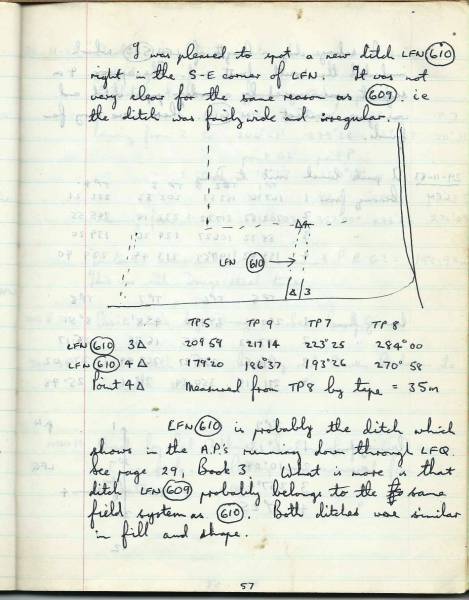 I was pleased to spot a new ditch LFN 610
right in the S-E corner of LFN. It was not
very clear for the same reason as 609 ie
the ditch was fairly wide and irregular.
Δ4
LFN 610 →
Δ 3
TP5 TP9 TP7 TP8
LFN 610 3Δ 209 59 217 14 223°25 284°00
LFN 610 4Δ 179°20 186°37 193°26 270°58
Point 4Δ Measured from TP8 by tape = 35m
LFN 610 is probably the ditch which
shows in the A.P.s running down through LFQ.
See page 29, Book 3. What is more is that
ditch LFN 609 probably belongs to the same
field system as 610. Both ditches were similar
in fill and shape.
57